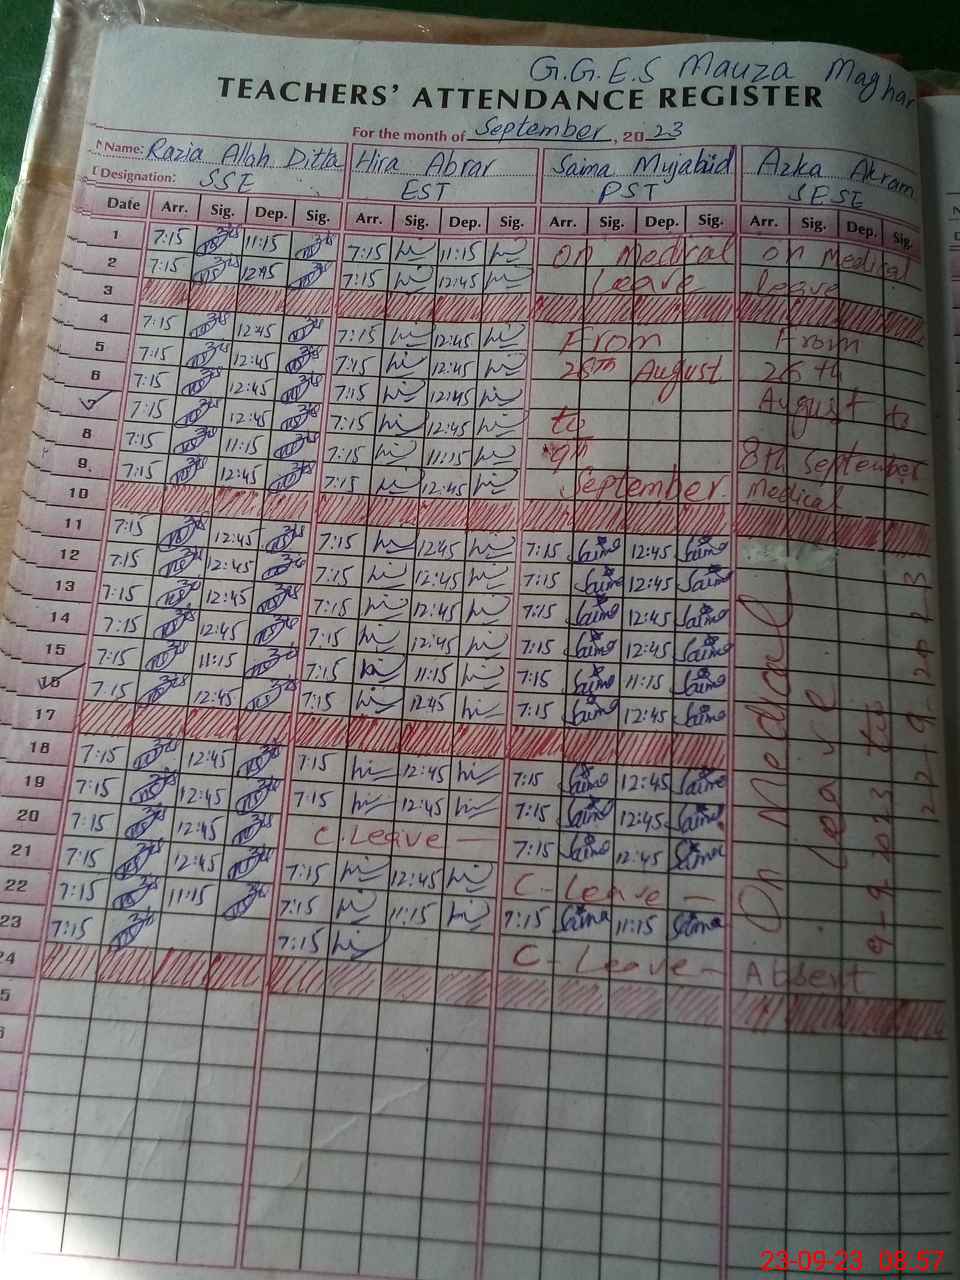 G.G.E.S Mauza Maghar
TEACHERS' ATTENDANCE REGISTER
For the month of September, 2023
Name: Razia Allah Ditta Hira Abrar Saima Mujahid Azka Akram
Designation: SSE EST PST SESE
Date Arr. Sig. Dep. Sig. Arr. Sig. Dep. Sig. Arr. Sig. Dep. Sig. Arr. Sig. Dep. Sig.
1 7:15 11:15 7:15 11:15 On Medical on Medical
2 7:15 12:45 7:15 12:45 Leave leave
3
4 7:15 12:45 7:15 12:45 From From
5 7:15 12:45 7:15 12:45 26th August 26th
6 7:15 12:45 7:15 12:45 August to
7 7:15 12:45 7:15 12:45 to
8 7:15 11:15 7:15 11:15 9th 8th September
9 7:15 12:45 7:15 12:45 September Medical
10
11 7:15 12:45 7:15 12:45 7:15 Saima 12:45 Saima
12 7:15 12:45 7:15 12:45 7:15 Saima 12:45 Saima
13 7:15 12:45 7:15 12:45 7:15 Saima 12:45 Saima
14 7:15 12:45 7:15 12:45 7:15 Saima 12:45 Saima
15 7:15 11:15 7:15 11:15 7:15 Saima 11:15 Saima
16 7:15 12:45 7:15 12:45 7:15 Saima 12:45 Saima
17
18 7:15 12:45 7:15 12:45 7:15 Saima 12:45 Saima
19 7:15 12:45 7:15 12:45 7:15 Saima 12:45 Saima
20 7:15 12:45 C.Leave — 7:15 Saima 12:45 Saima
21 7:15 12:45 7:15 12:45 C-Leave —
22 7:15 11:15 7:15 11:15 7:15 Saima 11:15 Saima
23 7:15 7:15 C-Leave — Absent
24
5
6
On Medical
Leave
9-9-2023 to
22-9-2023
23-09-23 08.57